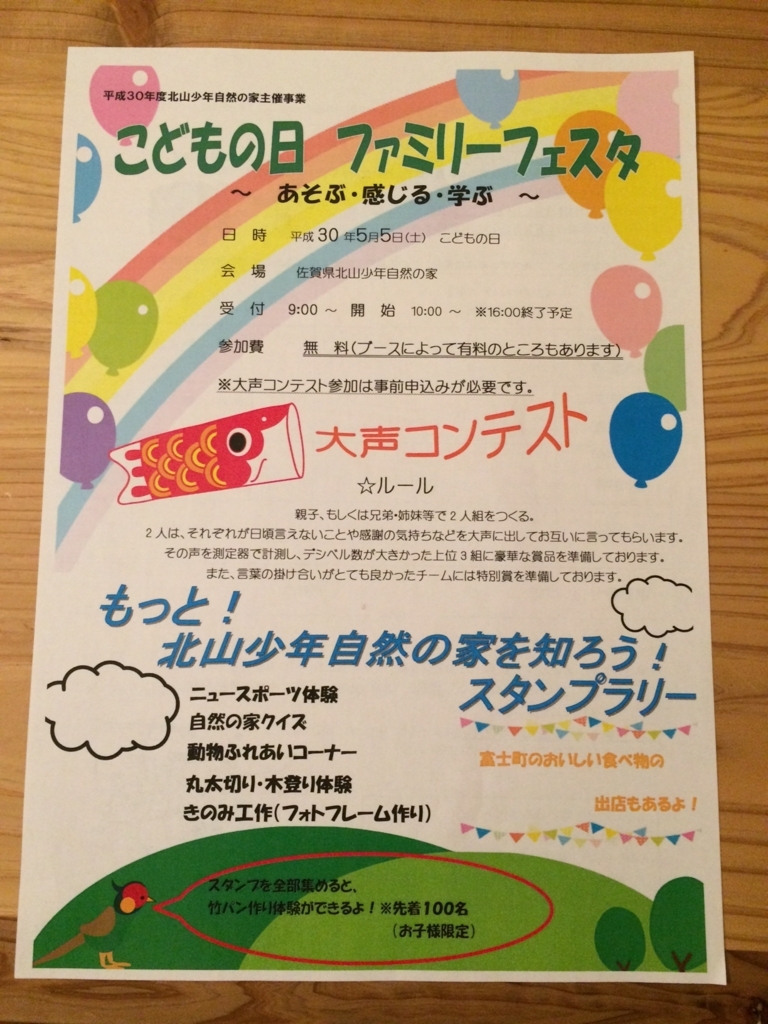 平成30年度北山少年自然の家主催事業
こどもの日 ファミリーフェスタ
~ あそぶ・感じる・学ぶ ~
日 時 平成 30 年5月5日(土) こどもの日
会 場 佐賀県北山少年自然の家
受 付 9:00 ~ 開 始 10:00 ~ ※16:00終了予定
参加費 無 料(ブースによって有料のところもあります)
※大声コンテスト参加は事前申込みが必要です。
大声コンテスト
☆ルール
親子、もしくは兄弟・姉妹等で2人組をつくる。
2人は、それぞれが日頃言えないことや感謝の気持ちなどを大声に出してお互いに言ってもらいます。
その声を測定器で計測し、デシベル数が大きかった上位3組に豪華な賞品を準備しております。
また、言葉の掛け合いがとても良かったチームには特別賞を準備しております。
もっと!
北山少年自然の家を知ろう!
スタンプラリー
ニュースポーツ体験
自然の家クイズ
動物ふれあいコーナー
丸太切り・木登り体験
きのみ工作(フォトフレーム作り)
富士町のおいしい食べ物の
出店もあるよ!
スタンプを全部集めると、
竹パン作り体験ができるよ!※先着100名
(お子様限定)